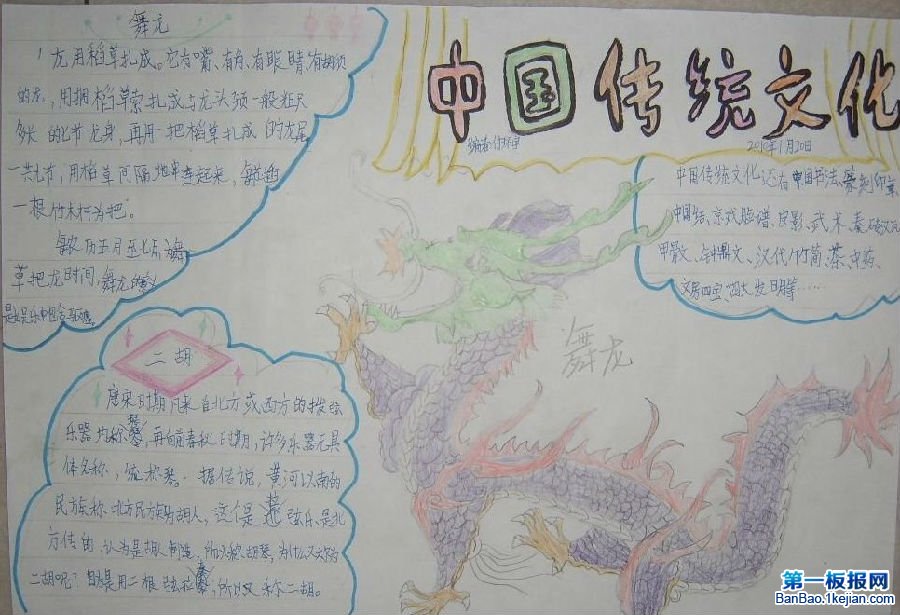 舞龙
龙用稻草扎成。它有嘴、有角、有眼睛、有胡须
的龙,用捆稻草索扎成与龙头颈一般粗尺
多长的七节龙身,再用一把稻草扎成的龙尾
一共七节,用稻草间隔地串连起来,每节
一根竹木杆为把。
农历五月至七月为舞
草把龙时间,舞龙的
是娱乐
二胡
唐宋时期凡来自北方或西方的拨弦
乐器均称琴,再向前春秋时期,许多乐器无具
体名称,统称琴。据传说,黄河以南的
民族称北方民族为胡人,这个是弦乐是北
方传留,认为是胡人制造,所以称胡琴,为什么又称为
二胡呢?因为是用二根弦拉奏,所以又称二胡。
中国传统文化
2010年1月20日
中国传统文化还有中国书法、篆刻印章、
中国结、京戏脸谱、皮影、武术、秦砖汉瓦
甲骨文、钟鼎文、汉代竹简、茶、中药、
文房四宝、四大发明等……
舞龙
第一板报网
BanBao.1kejian.com